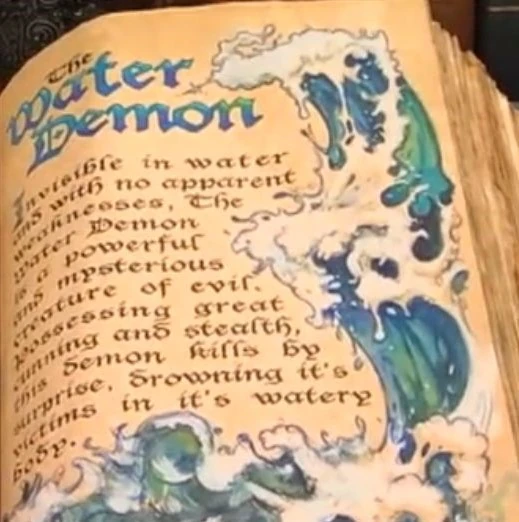 The
Water
Demon
Invisible in water
and with no apparent
weaknesses, The
Water Demon
is a powerful
and mysterious
creature of evil.
Possessing great
cunning and stealth,
this demon kills by
surprise, drowning it's
victims in it's watery
body.